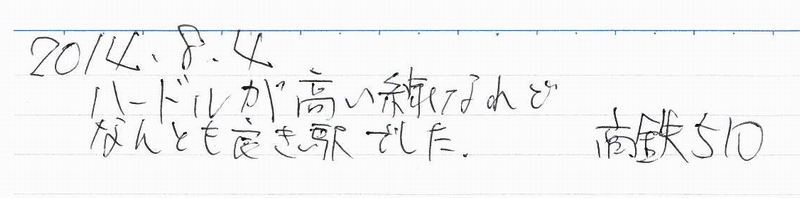 2014.8.4
ハードルが高い練なれど
なんとも良き駅でした.
高鉄510